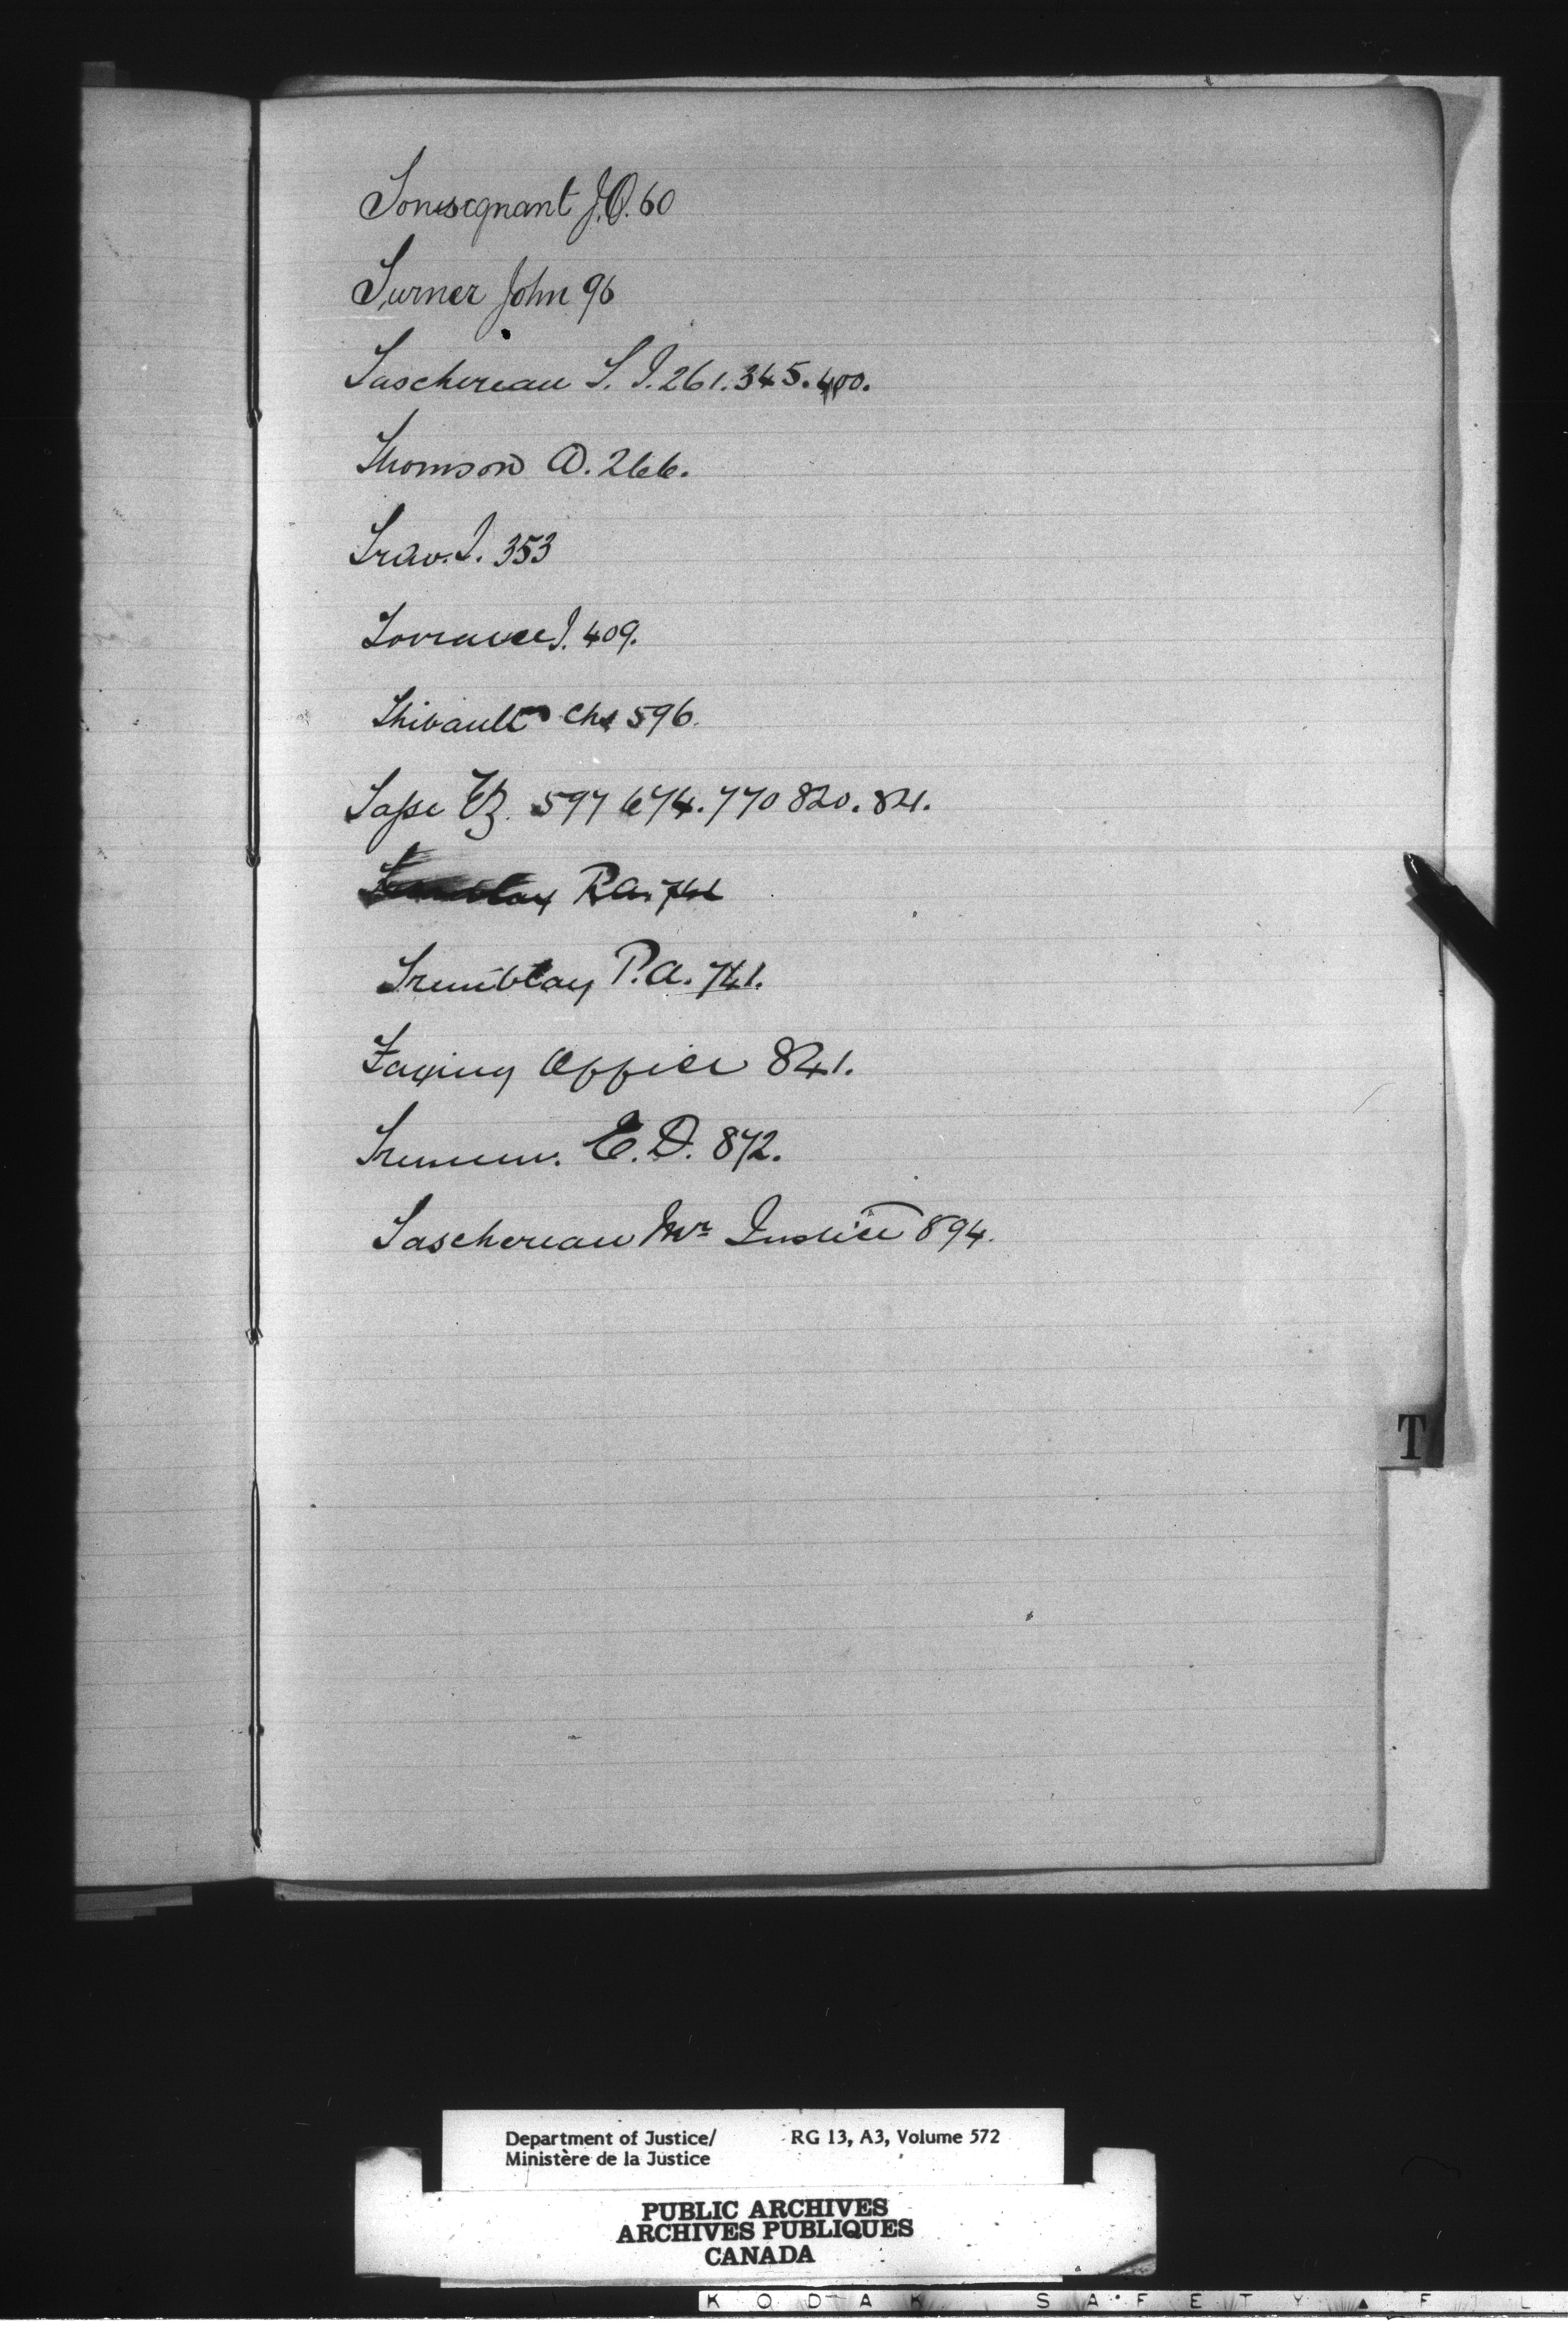 Tousignant J.O. 60
Turner John 96
Taschereau T. J. 261. 345. 400.
Thomson D. 266.
J. 353
Torrance J. 409.
Thibault Chs 596.
Tassé Ez. 597 674. 770 820. 821.
Tremblay P.A. 741
Tremblay P.A. 741.
Taxing Officer 841.
E. D. 872.
Taschereau Mr Justice 894.
T
Department of Justice/ RG 13, A3, Volume 572
Ministère de la Justice
PUBLIC ARCHIVES
ARCHIVES PUBLIQUES
CANADA
KODAK SAFETY FIL